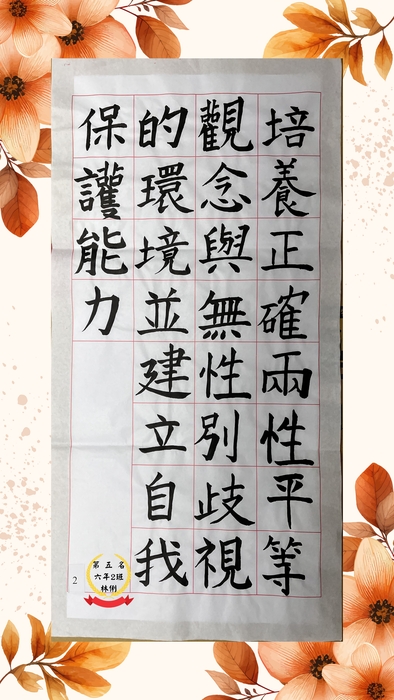 培養正確兩性平等
觀念與無性別歧視
的環境並建立自我
保護能力
2
第五名
六年2班
林俐